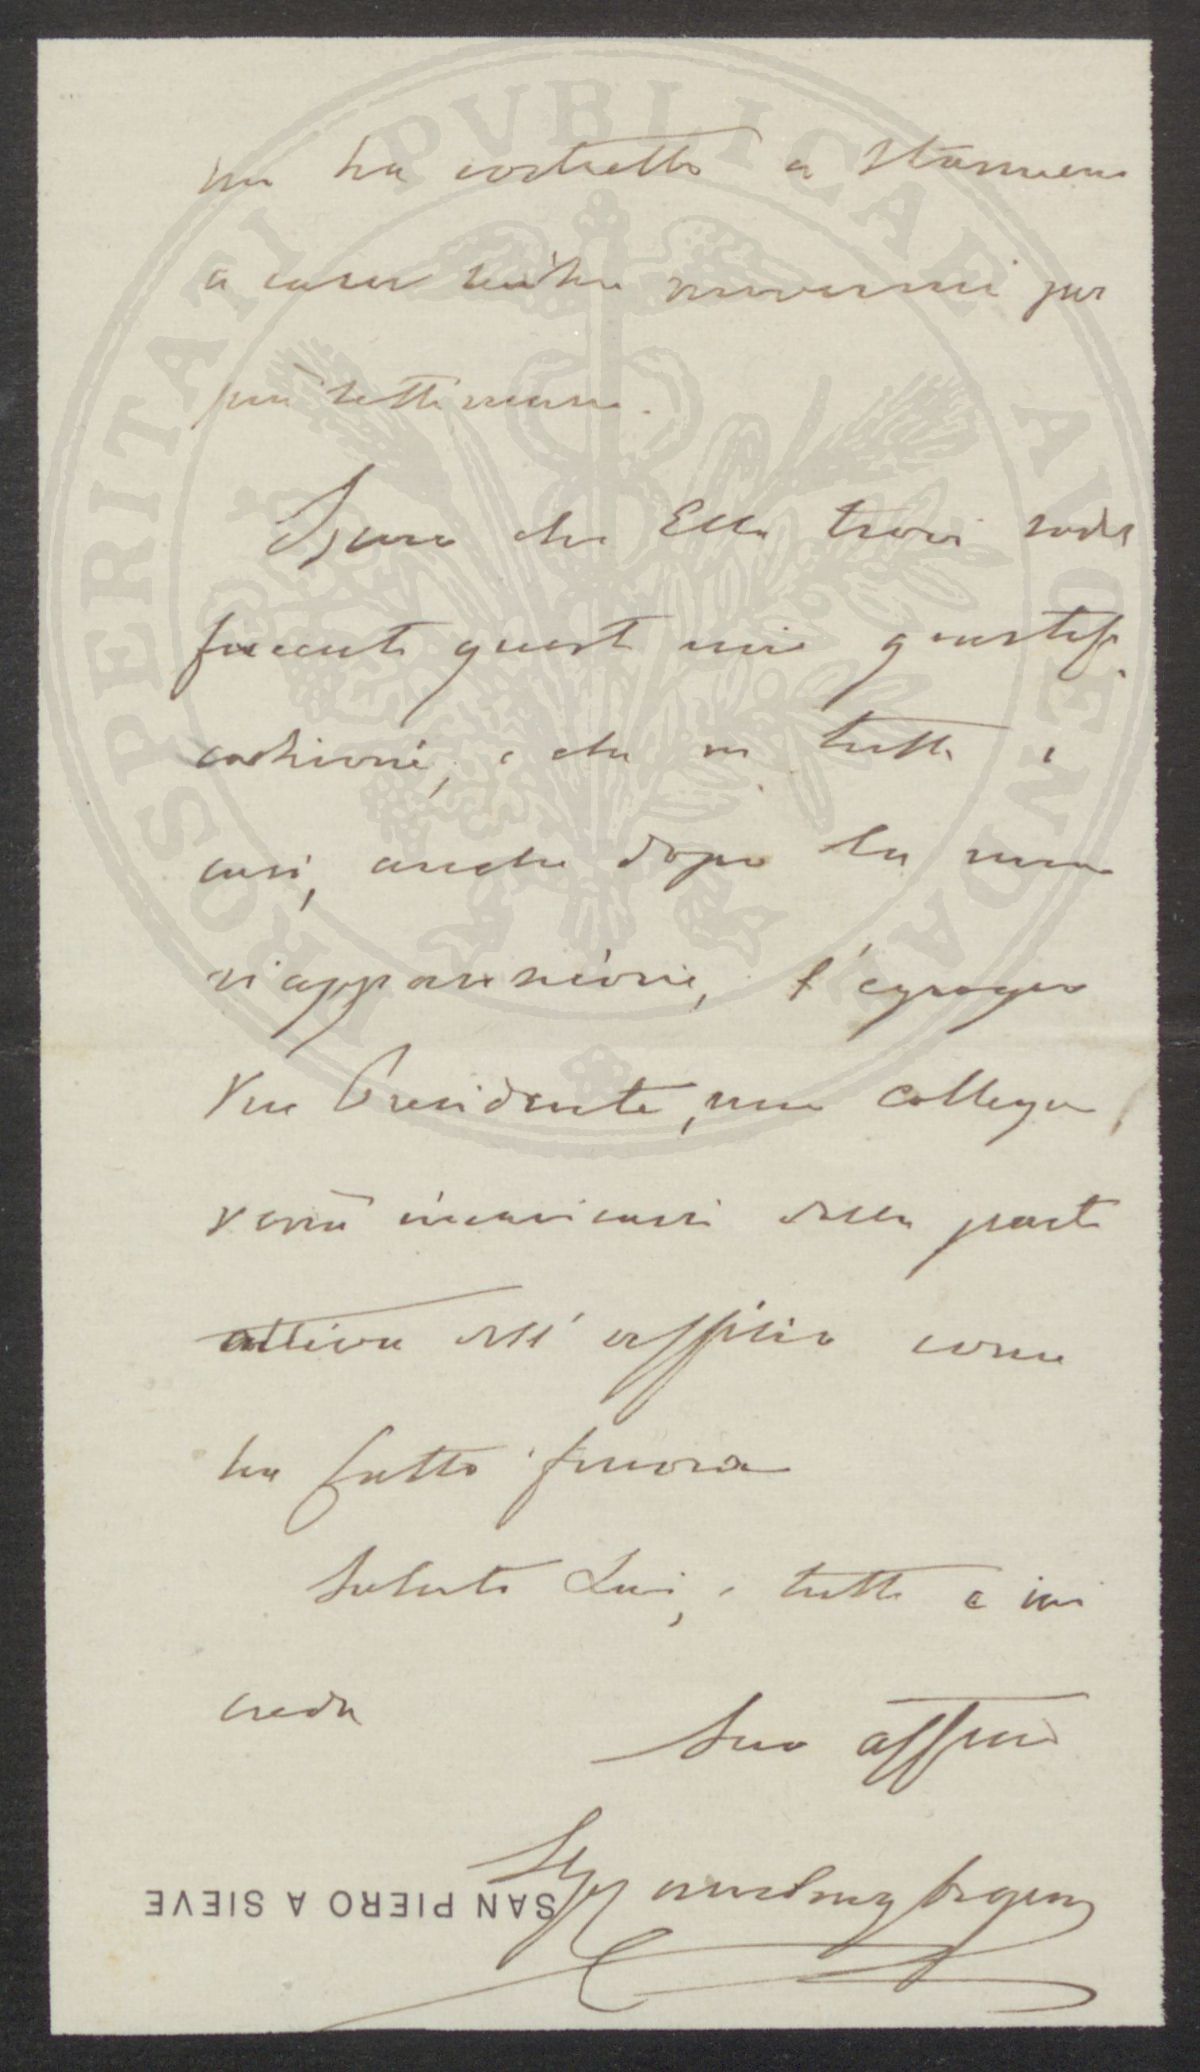 mi ha costretto a starmene
a casa senza muovermi per
più settimane.
Spero che Ella trovi sodi
sfacenti queste mie giustifi
cazioni, e che in tutti i
casi, anche dopo la mia
riapparizione, l'egregio
Vice Presidente, mio collega,
vorrà incaricarsi della parte
attiva dell'officio come
ha fatto finora
Saluto Lei, e tutti e mi
creda
Suo affmo
SAN PIERO A SIEVE
PROSPERITATI PVBLICAE AVGENDAE